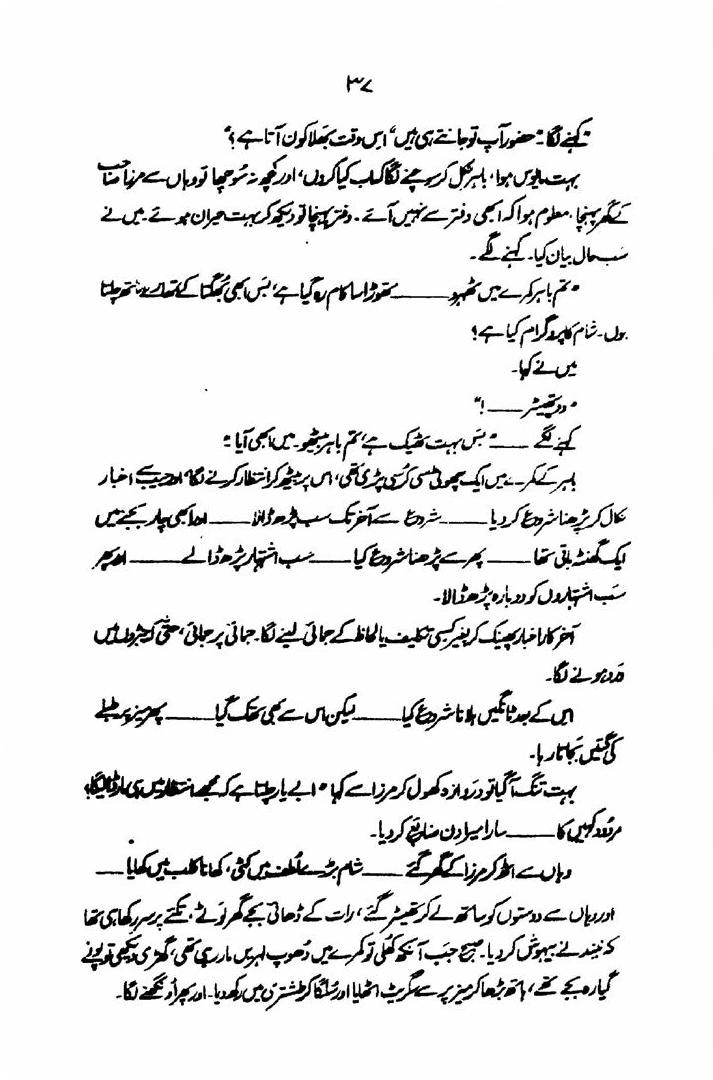 ۳۷
"کہنے لگا۔" حضور آپ تو جانتے ہی ہیں" اس وقت بھلا کون آتا ہے؟"
بہت مایوس ہوا، باہر نکل کر سوچنے لگا کہ اب کیا کروں، اور کچھ نہ سُوجھا تو وہاں سے مرزا صاحب
کے گھر پہنچا، معلوم ہوا کہ ابھی دفتر سے نہیں آئے۔ دفتر پہنچا تو دیکھ کر بہت حیران ہوئے۔ میں نے
سب حال بیان کیا۔ کہنے لگے۔
"تم باہر کمرے میں ٹھہرو ــــــ تھوڑا سا کام رہ گیا ہے، بس ابھی بُھگتا کے تمہارے ساتھ چلتا
ہوں۔ شام کا پروگرام کیا ہے؟
میں نے کہا۔
"تھیٹر ــــــ!"
کہنے لگے ــــــ "بس بہت ٹھیک ہے، تم باہر بیٹھو۔ میں ابھی آیا"۔
باہر کے کمرے میں ایک چھوٹی سی کرسی پڑی تھی، اس پر بیٹھ کر انتظار کرنے لگا، اور جیب سے اخبار
نکال کر پڑھنا شروع کر دیا ــــــ شروع سے آخر تک سب پڑھ ڈالا ــــــ اور ابھی چار بجنے میں
ایک گھنٹہ باقی تھا ــــــ پھر سے پڑھنا شروع کیا ــــــ سب اشتہار پڑھ ڈالے ــــــ اور پھر
سب اشتہاروں کو دوبارہ پڑھ ڈالا۔
آخر کار اخبار پھینک کر بغیر کسی تکلیف یا لحاظ کے جمائی لینے لگا۔ جمائی پر جمائی، حتیٰ کہ جبڑوں میں
درد ہونے لگا۔
اس کے بعد ٹانگیں ہلانا شروع کیا ــــــ لیکن اس سے بھی تھک گیا ــــــ پھر میز پر طبلے
کی گتیں بجاتا رہا۔
بہت تنگ آ گیا تو دروازہ کھول کر مرزا سے کہا "ابے یار چلتا ہے کہ مجھے انتظار میں ہی مار ڈالے گا،
مردود کہیں کا ــــــ سارا میرا دن ضائع کر دیا۔
وہاں سے اٹھ کر مرزا کے گھر گئے ــــــ شام بڑے لُطف میں کٹی، کھانا کلب میں کھایا ــــــ
اور وہاں سے دوستوں کو ساتھ لے کر تھیٹر گئے، رات کے ڈھائی بجے گھر لَوٹے، تکیے پر سر رکھا ہی تھا
کہ نیند نے بیہوش کر دیا۔ صبح جب آنکھ کُھلی تو کمرے میں دُھوپ لہریں مار رہی تھی، گھڑی دیکھی تو پونے
گیارہ بجے تھے، ہاتھ بڑھا کر میز پر سے سگریٹ اٹھایا اور سُلگا کر طشتری میں رکھ دیا۔ اور پھر اُونگھنے لگا۔